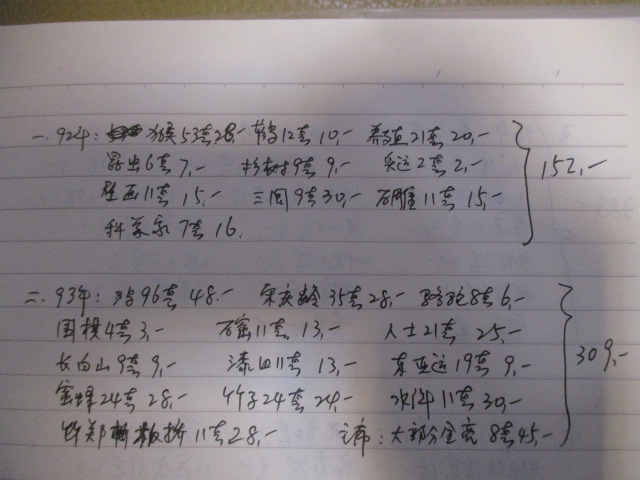 一. 92年: 猴53套28,- 鹳12套10,- 养殖21套20,-
昆虫6套7,- 杉树9套9,- 奥运2套2,-
壁画11套15,- 三国9套30,- 石雕11套15,-
科学家7套16.
152,-
二. 93年: 鸡96套48,- 宋庆龄35套28,- 骆驼8套6,-
围棋4套3,- 石窟11套13,- 人士21套25,-
长白山9套9,- 漆四11套13,- 东亚运19套9,-
蜜蜂24套28,- 竹子24套24,- 水浒11套30,-
郑板桥11套28,- 大部分全亮8套45,-
309,-